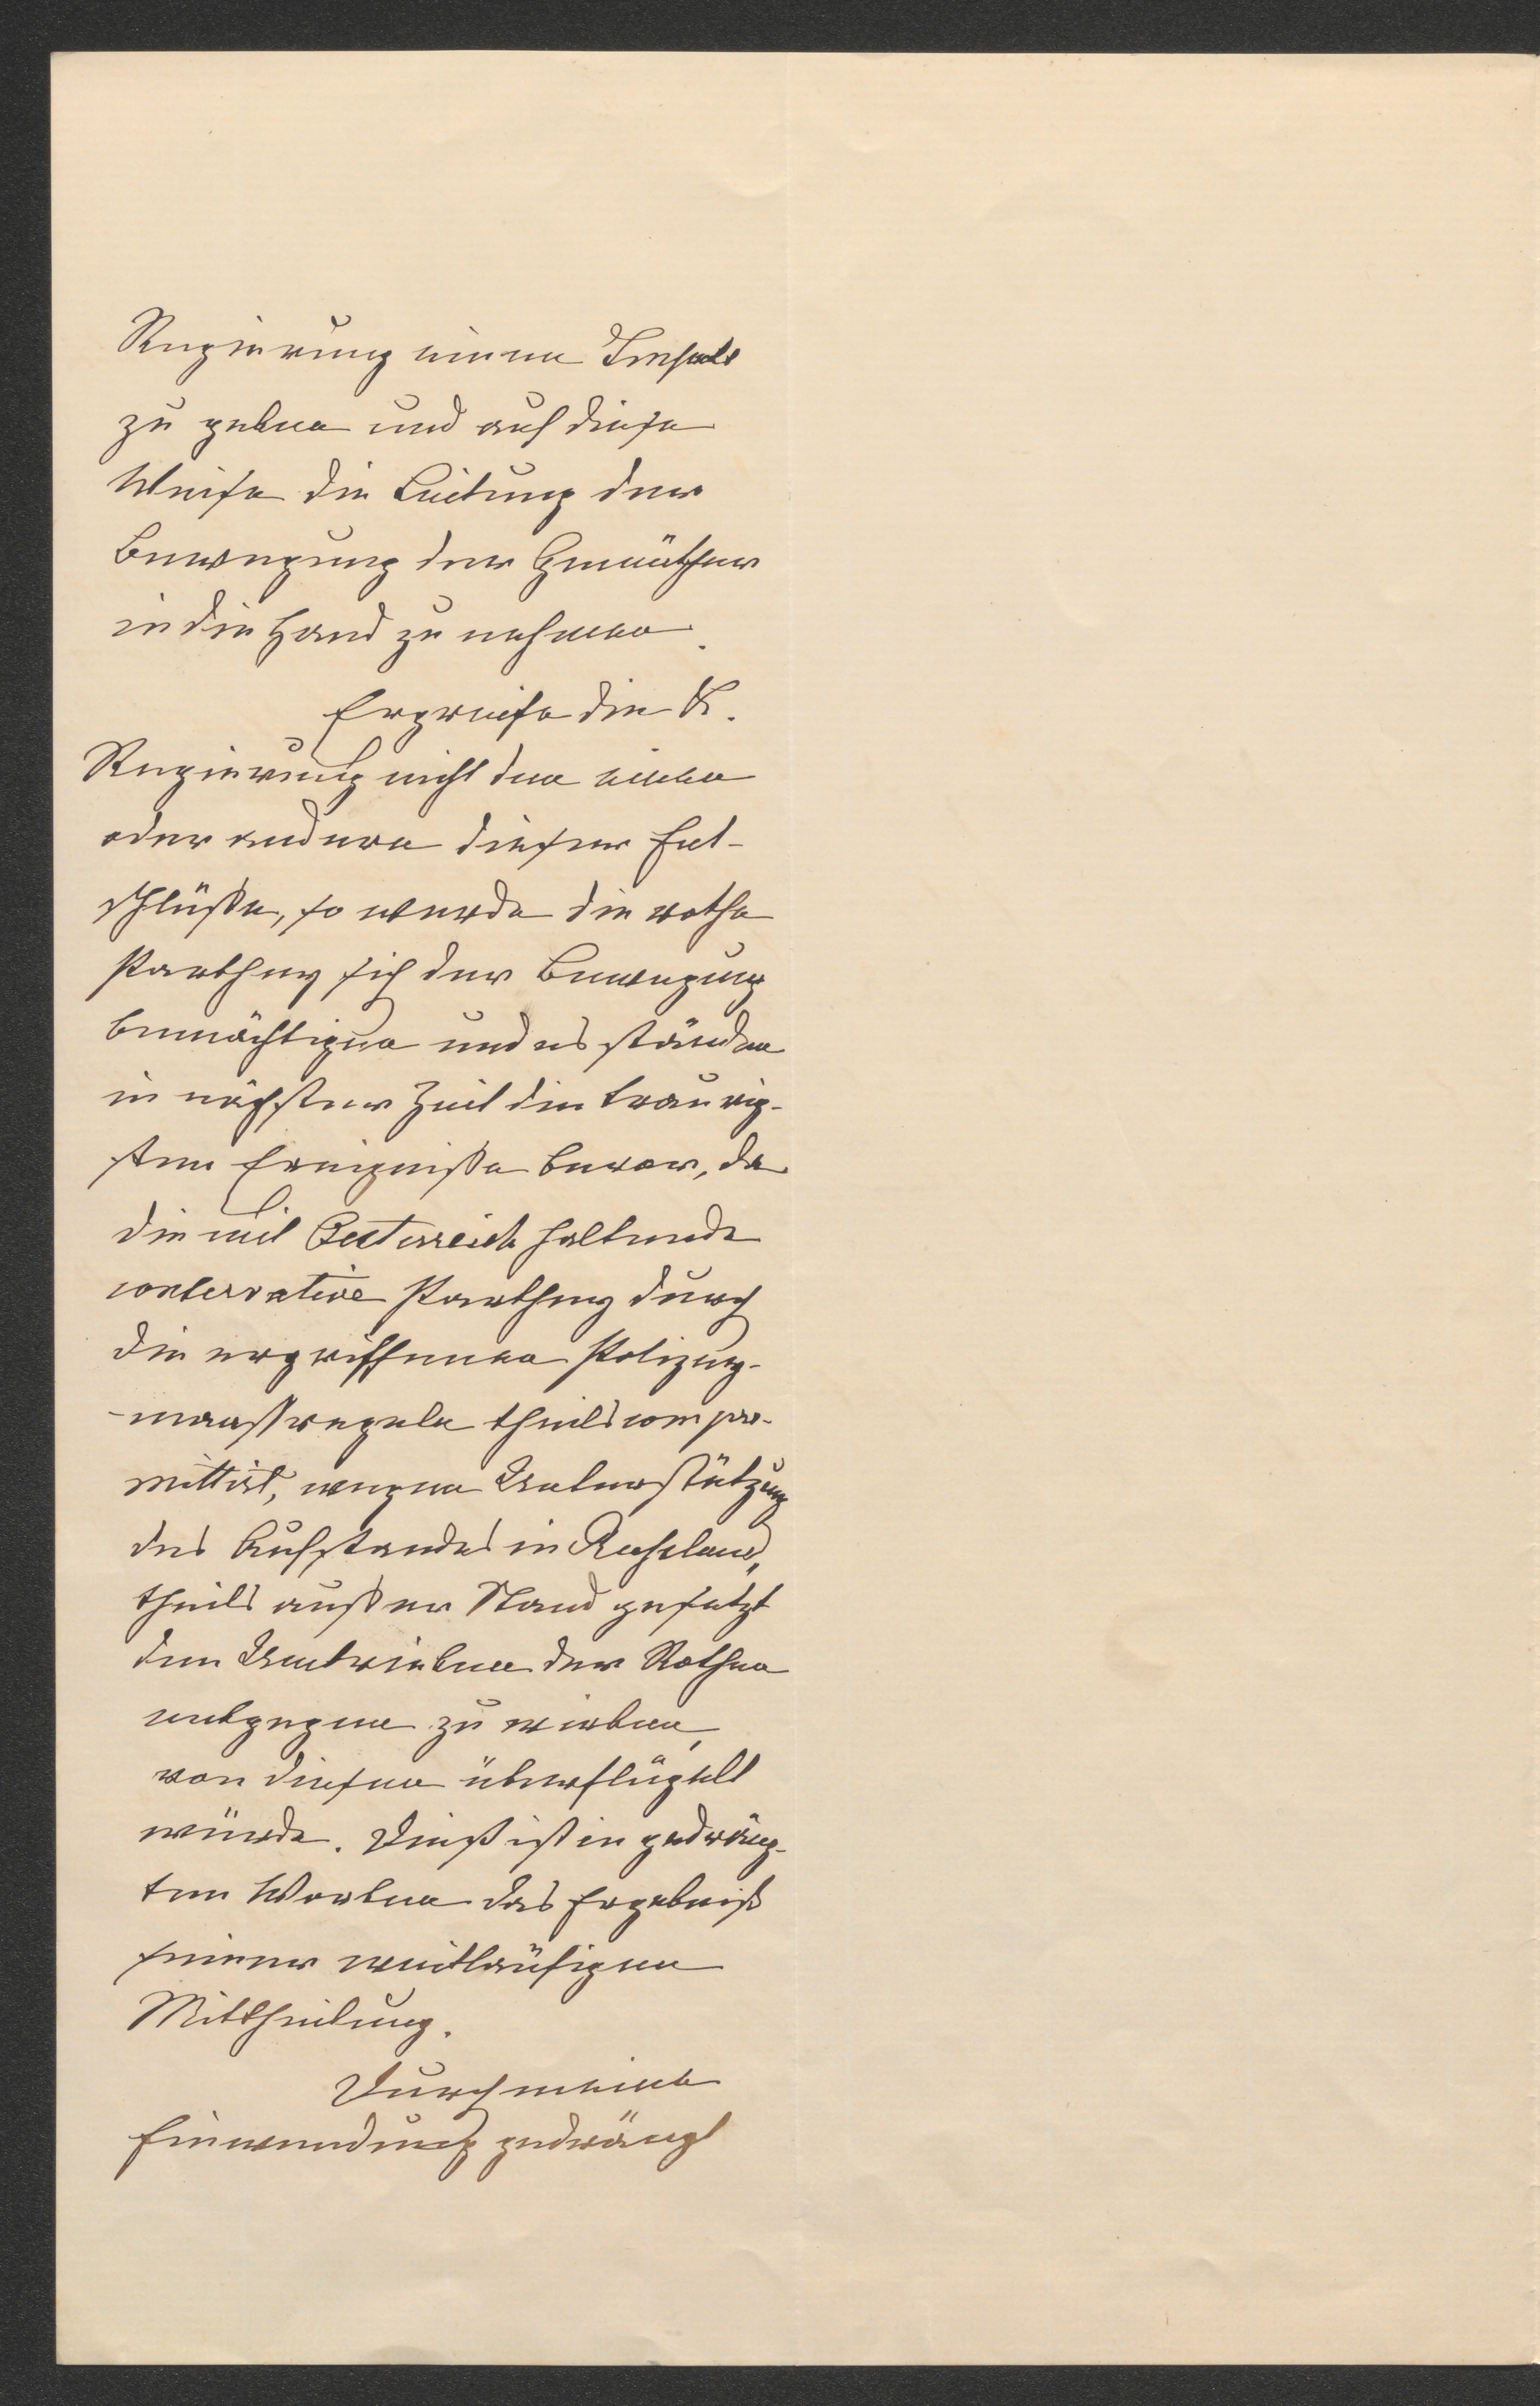 Regierung einen Impuls
zu geben und auf diese
Weise die Leitung der
Bewegung der Gemüther
in die Hand zu nehmen.
Ergreife die K.
Regierung nicht den einen
oder andern dieser Ent-
schlüße, so werde die rothe
Parthey sich der Bewegung
bemächtigen und es ständen
in nächster Zeit die traurig-
sten Ereigniße bevor, da
die mit Oesterreich haltende
conservative Parthey durch
die ergriffenen Polizey-
-maassregeln theils compro-
mittirt, wegen Unterstützung
des Aufstandes in Russland,
theils außer Stand gesetzt
dem Umtrieben der Rothen
entgegen zu wirken,
von diesen überflügelt
würde. Dieß ist in gedräng-
ten Worten das Ergebniß
seiner weitläufigen
Mittheilung.
Durch meine
Einwendung gedrängt